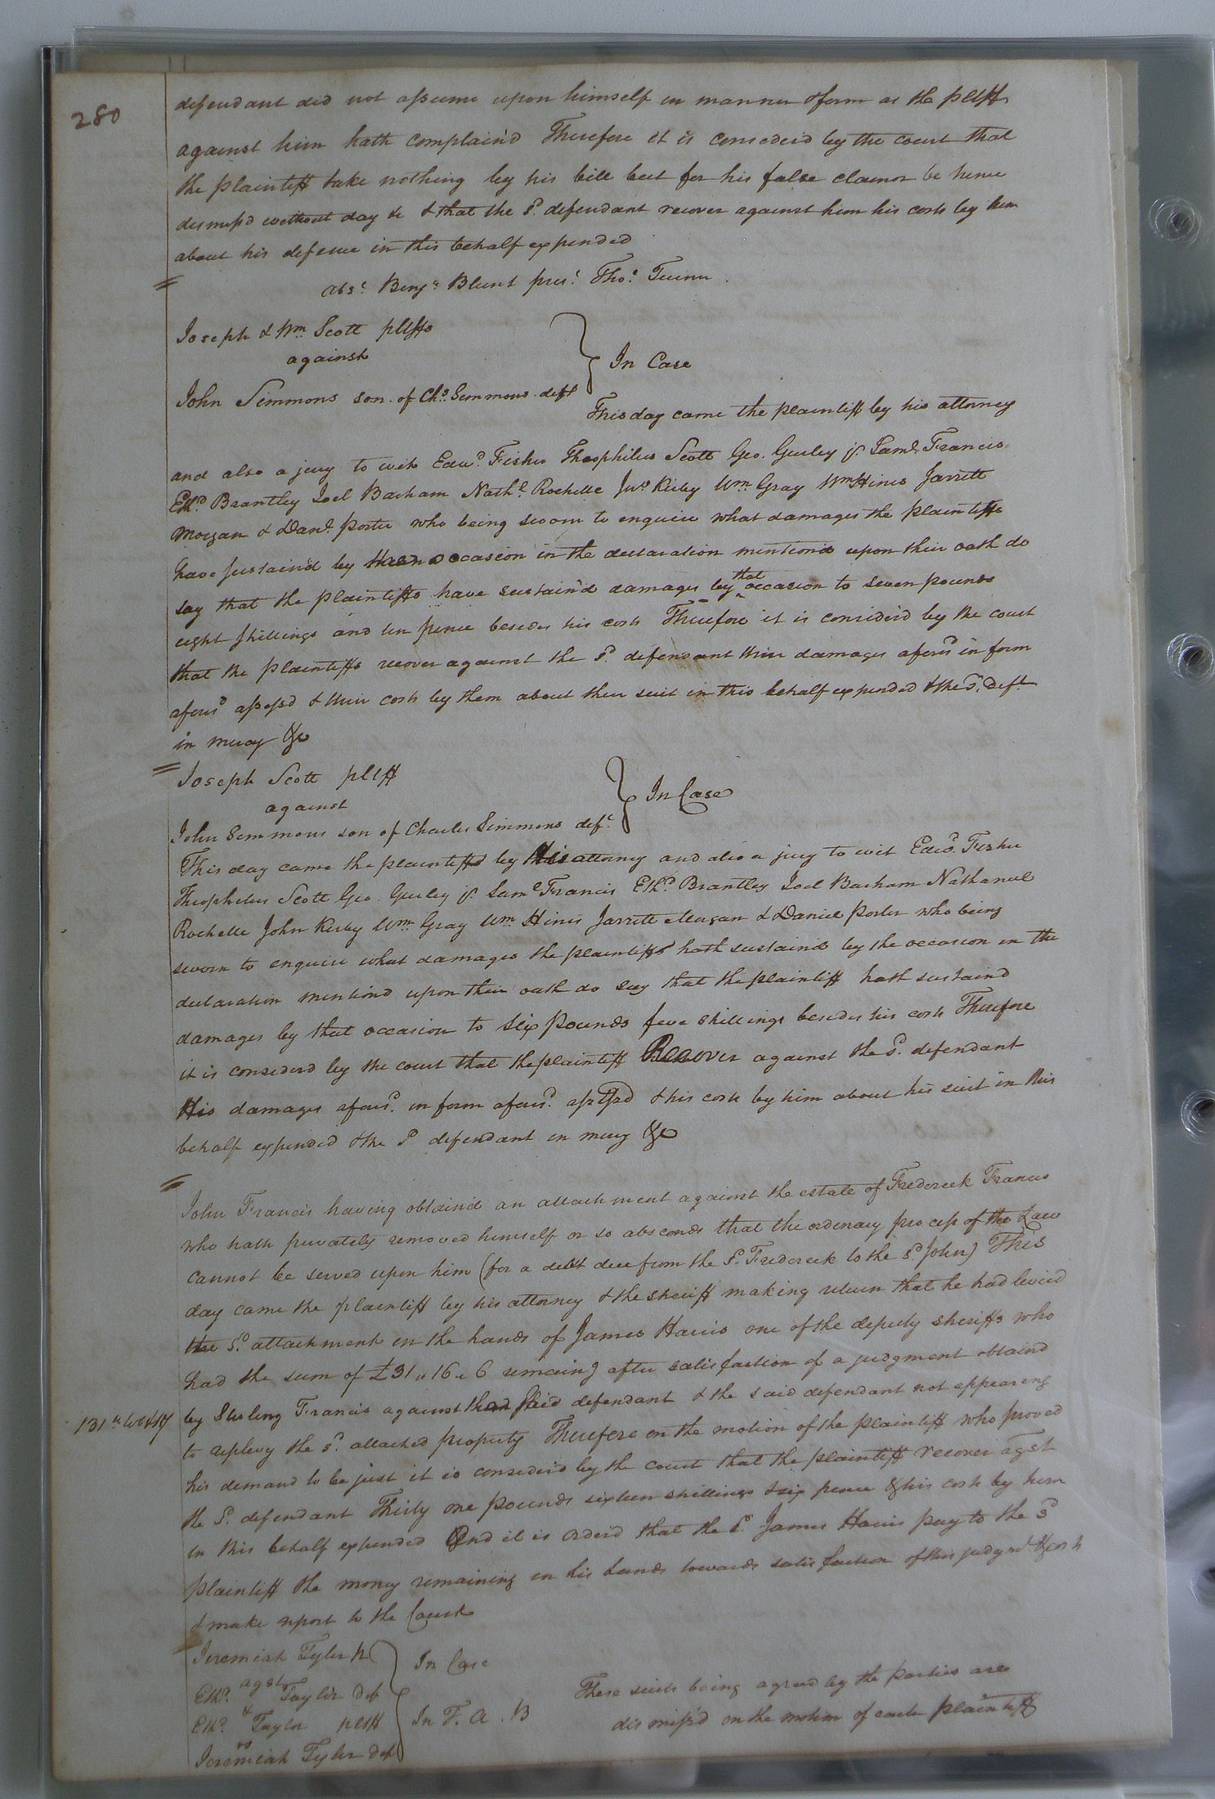 280
defendant did not assume upon himself in manner & form as the pltff
against him hath complain'd Therefore it is consider'd by the court that
the plaintiff take nothing by his bill but for his false clamor be hence
dismiss'd without day &c & that the sd. defendant recover against him his costs by him
about his defence in this behalf expended
abst. Benja. Blunt prest. Thos. Turner.
Joseph & Wm. Scott pltffs
against
In Case
John Simmons son of Chs. Simmons deft
This day came the plaintiff by his attorney
and also a jury to wit Edwd. Fisher Theophilus Scott Geo. Gurley jr Saml. Francis
Ethd. Brantley Joel Barham Nathl. Rochelle Jno. Kirby Wm. Gray Wm Hines Jarrett
Morgan & Danl. Porter who being sworn to enquire what damages the plaintiffs
have sustain'd by occasion in the declaration mention'd upon their oath do
say that the plaintiffs have sustain'd damages by that occasion to seven pounds
eight shillings and ten pence besides his costs Therefore it is consider'd by the court
that the plaintiffs recover against the sd. defendant their damages aforesd in form
aforesd assess'd & their costs by them about their suit in this behalf expended & the sd. Deft.
in mercy &c
Joseph Scott pltff
against
In Case
John Simmons son of Charles Simmons deft.
This day came the plaintiff by his attorney and also a jury to wit Edwd. Fisher
Theophilus Scott Geo. Gurley jr. Saml Francis Ethd. Brantley Joel Barham Nathaniel
Rochelle John Kirby Wm. Gray Wm Hines Jarrett Morgan & Daniel Porter who being
sworn to enquire what damages the plaintiff hath sustain'd by the occasion in the
declaration mention'd upon their oath do say that the plaintiff hath sustain'd
damages by that occasion to six pounds five shillings besides his costs Therefore
it is consider'd by the court that the plaintiff Recover against the sd. defendant
His damages aforesd. in form aforesd. assess'd & his costs by him about his suit in this
behalf expended & the sd defendant in mercy &c
John Francis having obtain'd an attachment against the estate of Frederick Francis
who hath privately removed himself or so absconds that the ordinary process of the Law
cannot be served upon him (for a debt due from the sd. Frederick to the sd. John) This
day came the plaintiff by his attorney & the sheriff making return that he had levied
the sd. attachment in the hands of James Harris one of the deputy sheriffs who
had the sum of £31 " 16 " 6 remaing after satisfaction of a judgment obtaind
by Sterling Francis against the said defendant & the said defendant not appearing
to replevy the sd. attached property Therefore on the motion of the plaintiff who proved
his demand to be just it is consider'd by the court that the plaintiff recover agst
the sd. defendant Thirty one pounds sixteen shillings & six pence & his costs by him
in this behalf expended And it is order'd that the sd. James Harris pay to the sd
plaintiff the money remaining in his hands towards satisfaction of this judgmt & costs
& make report to the Court
Jeremiah Tyler
agst
In Case
Ethd. Taylor def
Ethd. Taylor pltff
In T. A. B
vs
Jeremiah Tyler def
These suits being agreed by the parties are
dismiss'd on the motion of each plaintiff